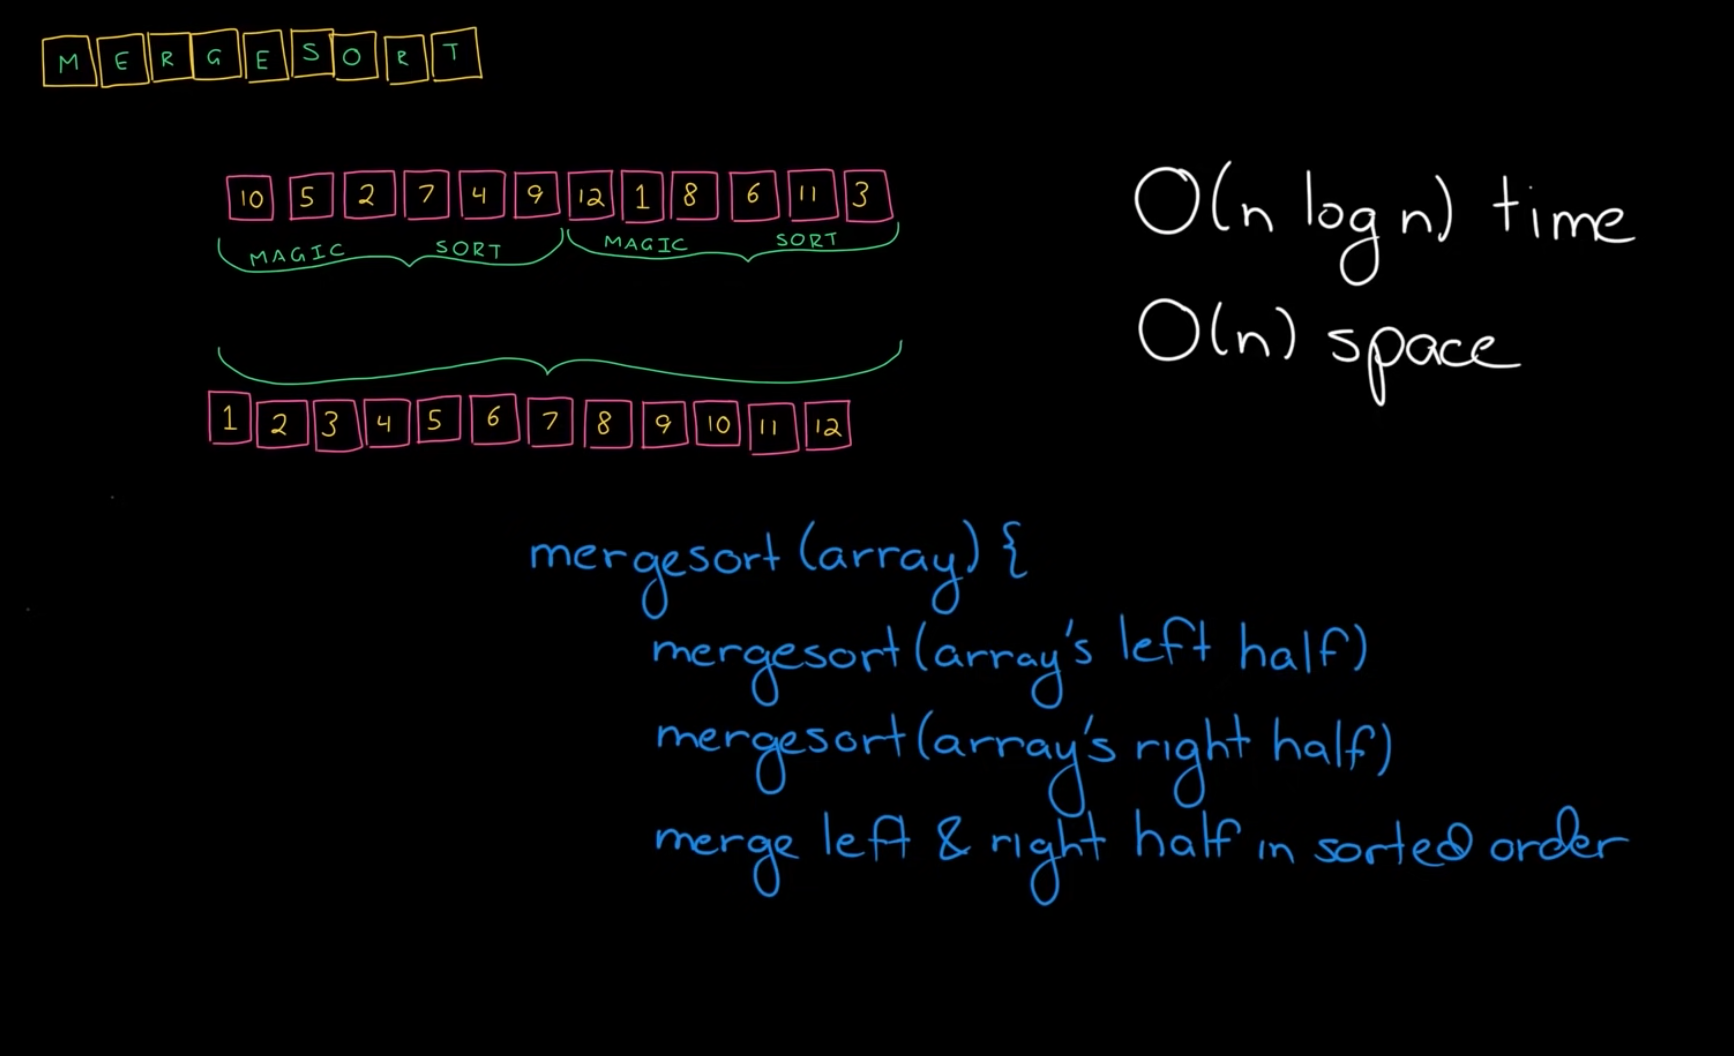 MERGESORT
10 5 2 7 4 9 12 1 8 6 11 3
MAGIC SORT MAGIC SORT
O(n log n) time
O(n) space
1 2 3 4 5 6 7 8 9 10 11 12
mergesort (array) {
mergesort (array's left half)
mergesort (array's right half)
merge left & right half in sorted order